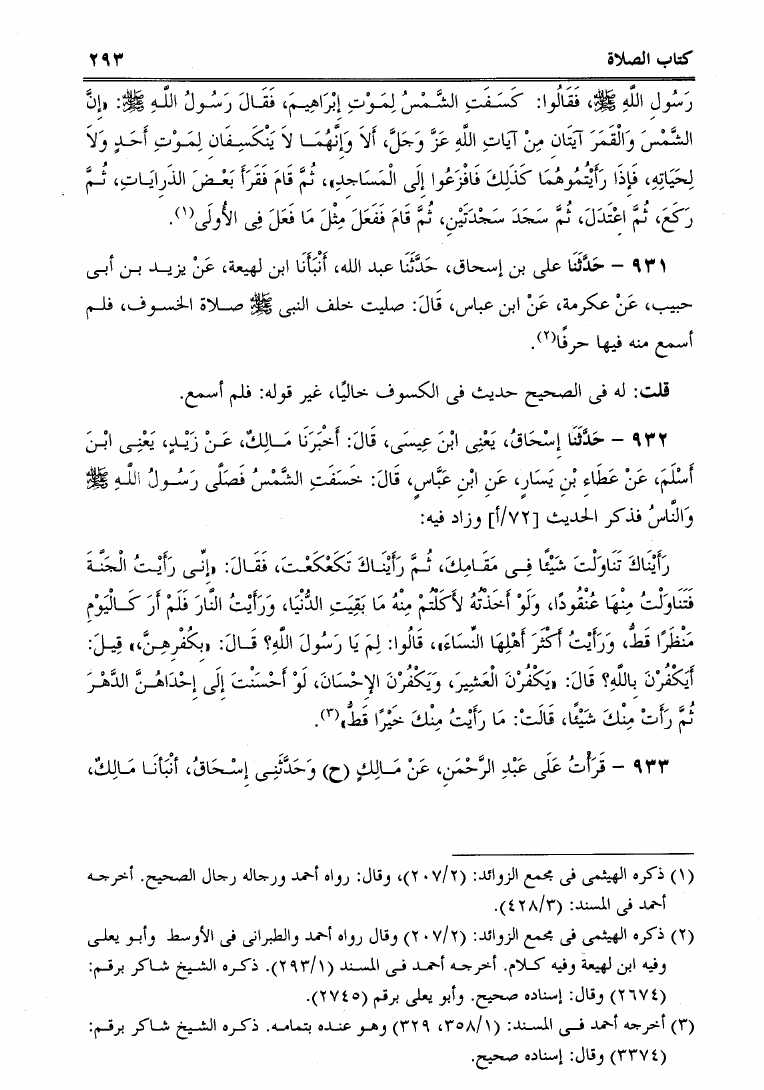 كتاب الصلاة ٢٩٣
رَسُولِ اللَّهِ ﷺ، فَقَالُوا: كَسَفَتِ الشَّمْسُ لِمَوْتِ إِبْرَاهِيمَ، فَقَالَ رَسُولُ اللَّهِ ﷺ: «إِنَّ
الشَّمْسَ وَالْقَمَرَ آيَتَانِ مِنْ آيَاتِ اللَّهِ عَزَّ وَجَلَّ، أَلاَ وَإِنَّهُمَا لاَ يَنْكَسِفَانِ لِمَوْتِ أَحَدٍ وَلاَ
لِحَيَاتِهِ، فَإِذَا رَأَيْتُمُوهُمَا كَذَلِكَ فَافْزَعُوا إِلَى الْمَسَاجِدِ»، ثُمَّ قَامَ فَقَرَأَ بَعْضَ الذَّرايَاتِ، ثُمَّ
رَكَعَ، ثُمَّ اعْتَدَلَ، ثُمَّ سَجَدَ سَجْدَتَيْنِ، ثُمَّ قَامَ فَفَعَلَ مِثْلَ مَا فَعَلَ فِى الأُولَى(١).
٩٣١ - حَدَّثَنَا على بن إسحاق، حَدَّثَنَا عبد الله، أَنْبَأَنَا ابن لهيعة، عَنْ يزيد بن أبى
حبيب، عَنْ عكرمة، عَنْ ابن عباس، قَالَ: صليت خلف النبى ﷺ صلاة الخسوف، فلم
أسمع منه فيها حرفًا(٢).
قلت: له فى الصحيح حديث فى الكسوف خاليًا، غير قوله: فلم أسمع.
٩٣٢ - حَدَّثَنَا إِسْحَاقُ، يَعْنِى ابْنَ عِيسَى، قَالَ: أَخْبَرَنَا مَالِكٌ، عَنْ زَيْدٍ، يَعْنِى ابْنَ
أَسْلَمَ، عَنْ عَطَاءِ بْنِ يَسَارٍ، عَنِ ابْنِ عَبَّاسٍ، قَالَ: خَسَفَتِ الشَّمْسُ فَصَلَّى رَسُولُ اللَّهِ ﷺ
وَالنَّاسُ فذكر الحديث [٧٢/أ] وزاد فيه:
رَأَيْنَاكَ تَنَاوَلْتَ شَيْئًا فِى مَقَامِكَ، ثُمَّ رَأَيْنَاكَ تَكَعْكَعْتَ، فَقَالَ: «إِنِّى رَأَيْتُ الْجَنَّةَ
فَتَنَاوَلْتُ مِنْهَا عُنْقُودًا، وَلَوْ أَخَذْتُهُ لأَكَلْتُمْ مِنْهُ مَا بَقِيَتِ الدُّنْيَا، وَرَأَيْتُ النَّارَ فَلَمْ أَرَ كَالْيَوْمِ
مَنْظَرًا قَطُّ، وَرَأَيْتُ أَكْثَرَ أَهْلِهَا النِّسَاءَ»، قَالُوا: لِمَ يَا رَسُولَ اللَّهِ؟ قَالَ: «بِكُفْرِهِنَّ»، قِيلَ:
أَيَكْفُرْنَ بِاللَّهِ؟ قَالَ: «يَكْفُرْنَ الْعَشِيرَ، وَيَكْفُرْنَ الإِحْسَانَ، لَوْ أَحْسَنْتَ إِلَى إِحْدَاهُنَّ الدَّهْرَ
ثُمَّ رَأَتْ مِنْكَ شَيْئًا، قَالَتْ: مَا رَأَيْتُ مِنْكَ خَيْرًا قَطُّ»(٣).
٩٣٣ - قَرَأْتُ عَلَى عَبْدِ الرَّحْمَنِ، عَنْ مَالِكٍ (ح) وَحَدَّثَنِى إِسْحَاقُ، أَنْبَأَنَا مَالِكٌ،
(١) ذكره الهيثمى فى مجمع الزوائد: (٢٠٧/٢)، وقال: رواه أحمد ورجاله رجال الصحيح. أخرجه
أحمد فى المسند: (٤٢٨/٣).
(٢) ذكره الهيثمى فى مجمع الزوائد: (٢٠٧/٢) وقال رواه أحمد والطبرانى فى الأوسط وأبو يعلى
وفيه ابن لهيعة وفيه كلام. أخرجه أحمد فى المسند (٢٩٣/١). ذكره الشيخ شاكر برقم:
(٢٦٧٤) وقال: إسناده صحيح. وأبو يعلى برقم (٢٧٤٥).
(٣) أخرجه أحمد فى المسند: (٣٥٨/١، ٣٢٩) وهو عنده بتمامه. ذكره الشيخ شاكر برقم:
(٣٣٧٤) وقال: إسناده صحيح.